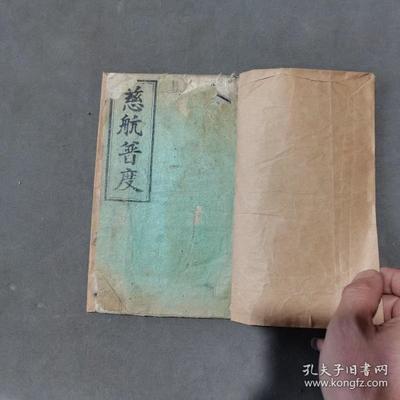 慈航普度
孔夫子旧书网
www.kongfz.com